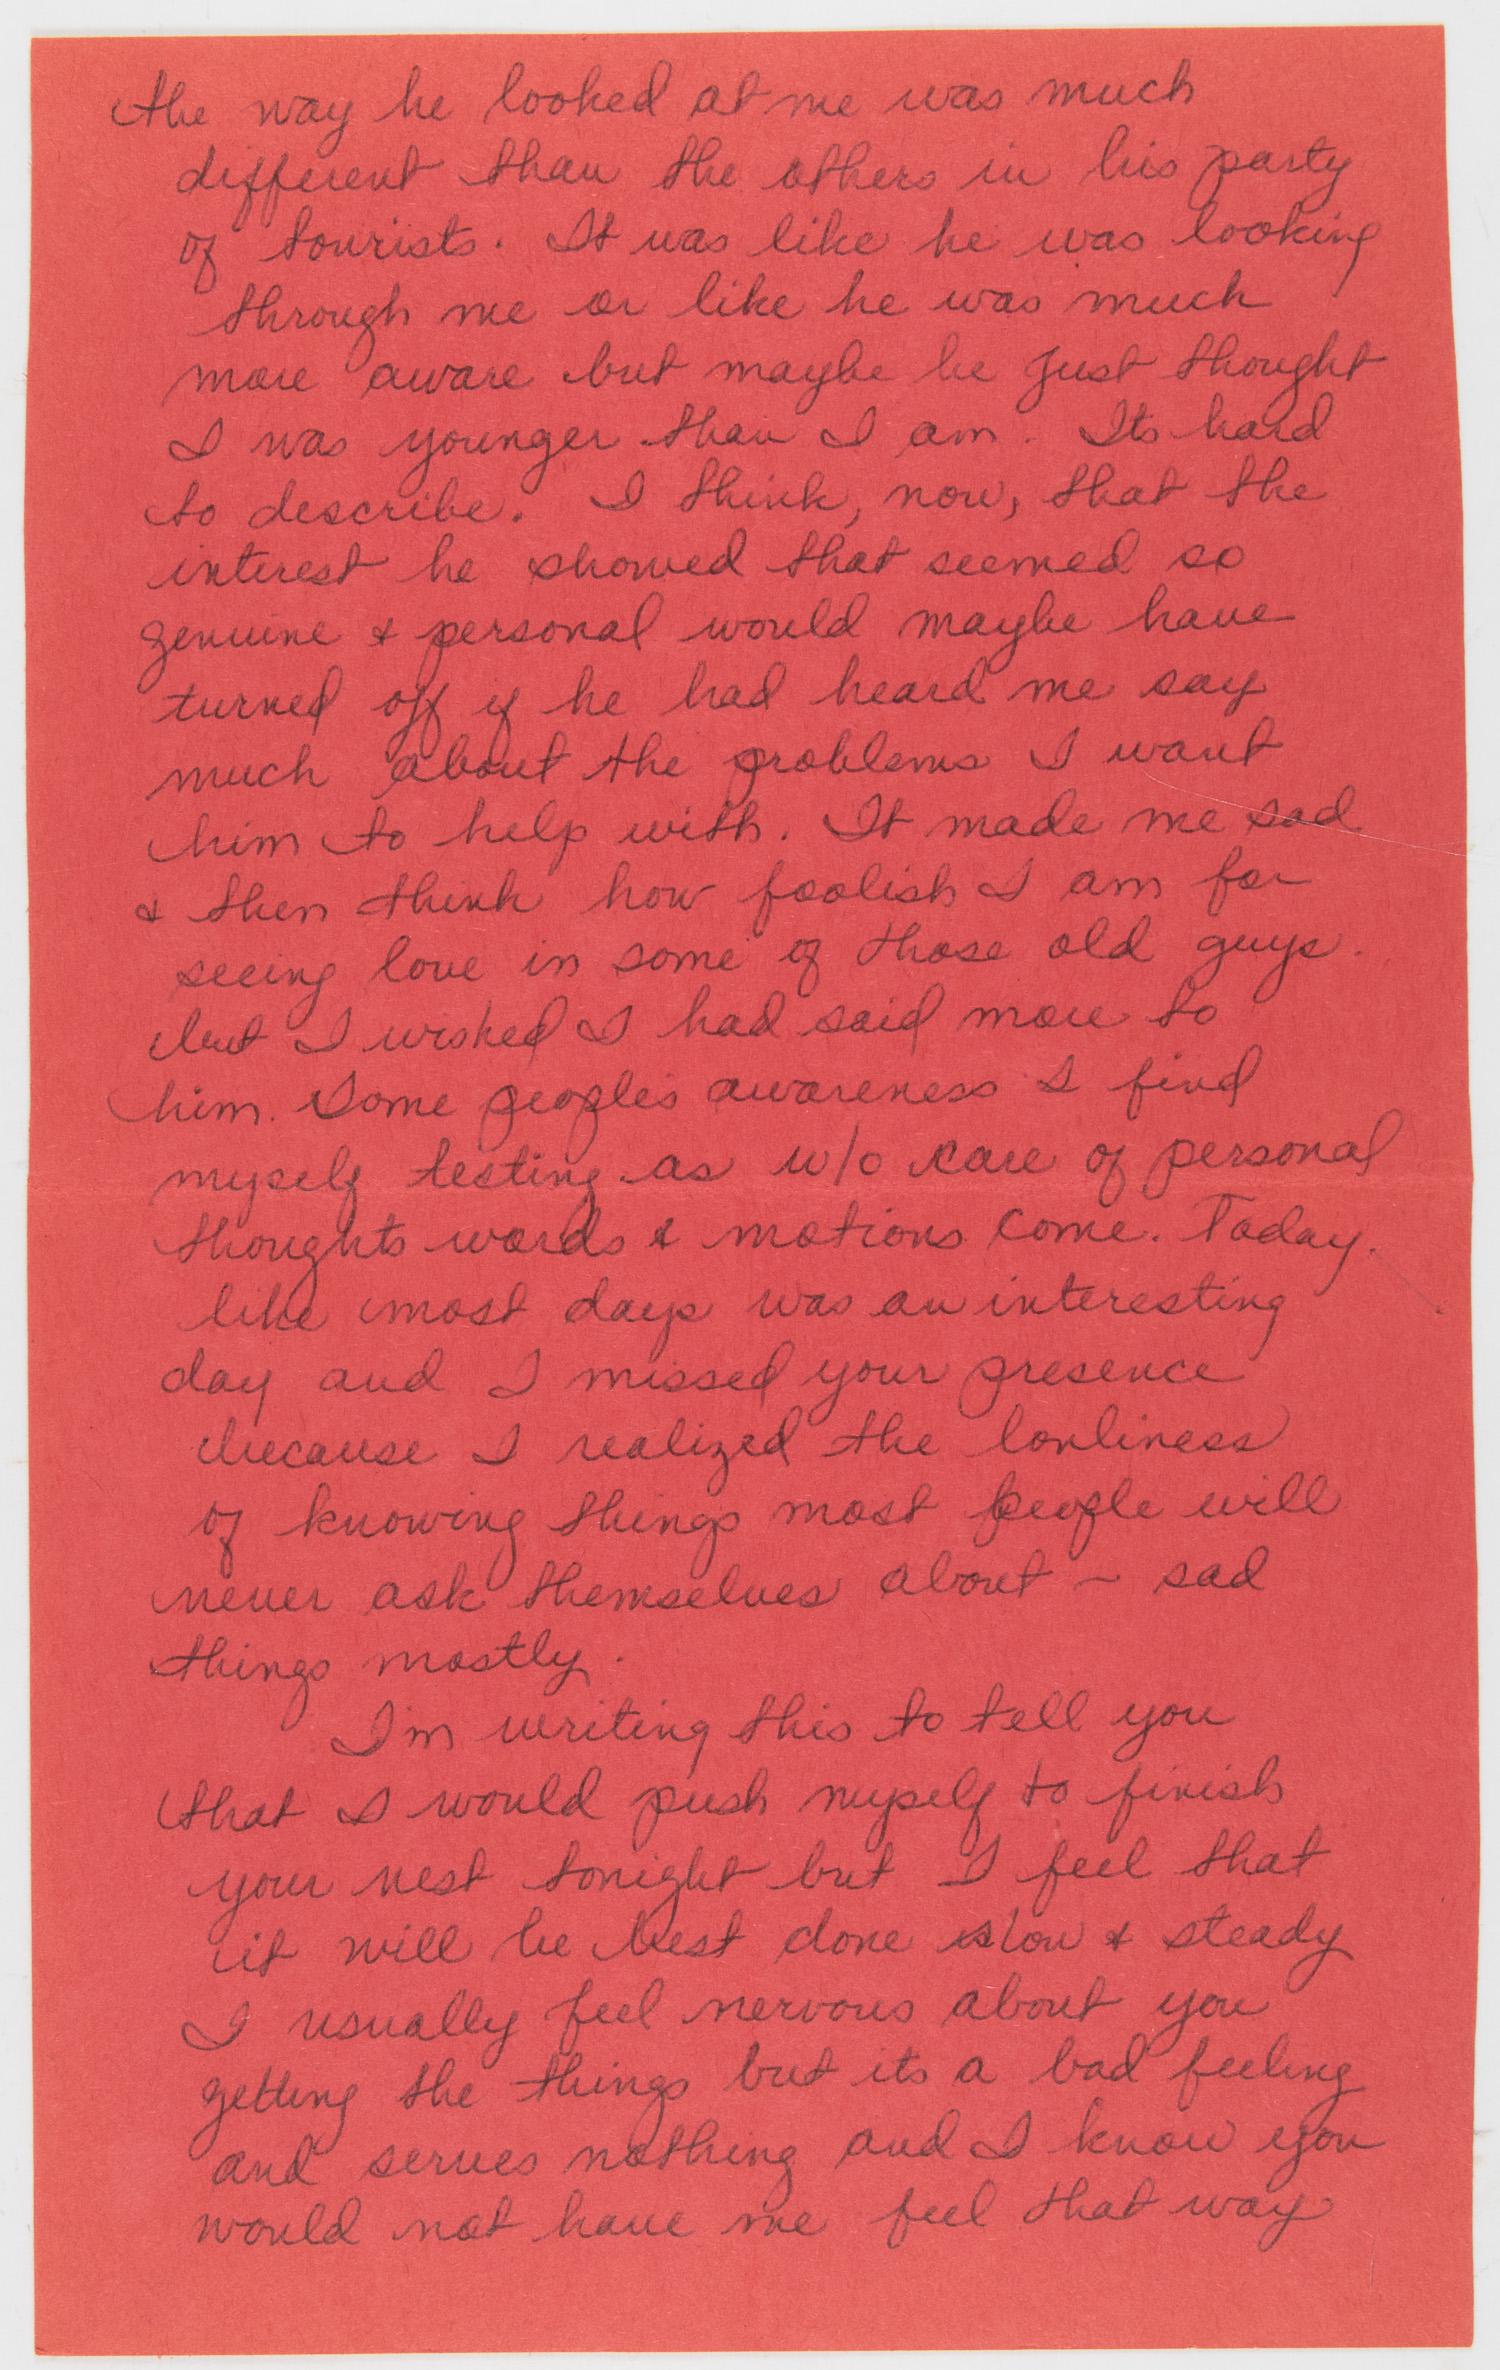 the way he looked at me was much
different than the others in his party
of tourists. It was like he was looking
through me or like he was much
more aware but maybe he just thought
I was younger than I am. Its hard
to describe. I think, now, that the
interest he showed that seemed so
genuine & personal would maybe have
turned off if he had heard me say
much about the problems I want
him to help with. It made me sad
& then think how foolish I am for
seeing love in some of those old guys.
but I wished I had said more to
him. Some people's awareness I find
myself testing as w/o care of personal
thoughts words & motions come. Today.
like most days was an interesting
day and I missed your presence
because I realized the lonliness
of knowing things most people will
never ask themselves about ~ sad
things mostly.
I'm writing this to tell you
that I would push myself to finish
your nest tonight but I feel that
it will be best done slow & steady
I usually feel nervous about you
getting the things but its a bad feeling
and serves nothing and I know you
would not have me feel that way